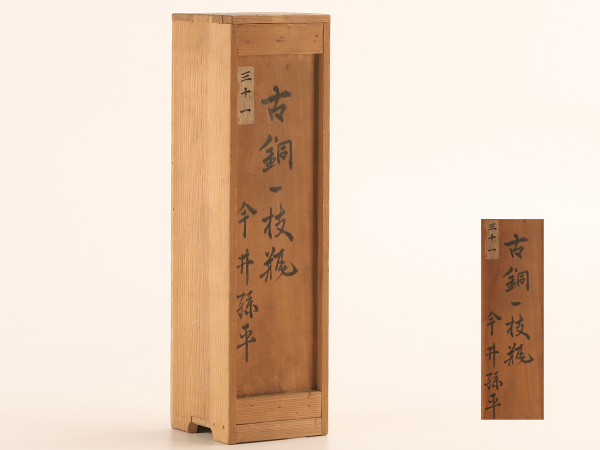 古銅一枝瓶
今井孫平
三十一
古銅一枝瓶
今井孫平
三十一